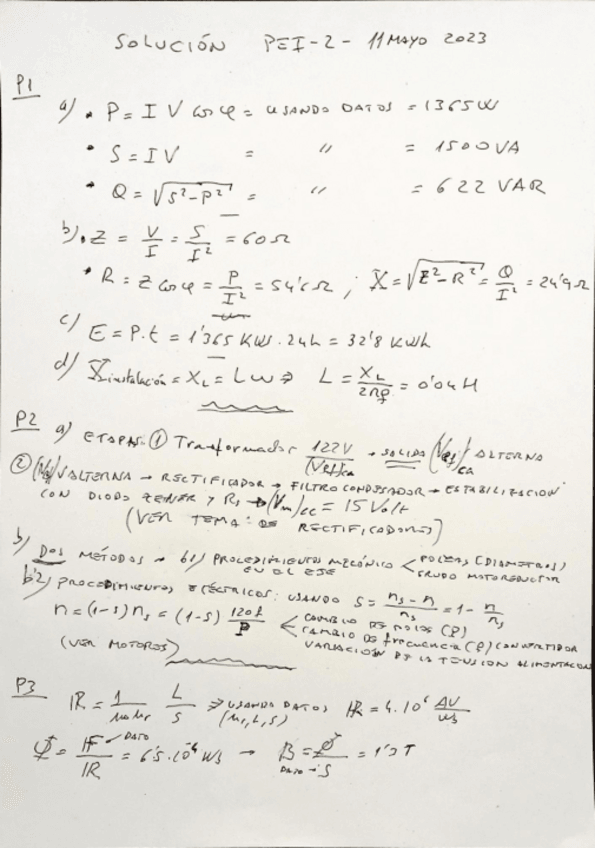 SOLUCIÓN PEI-2- 11 MAYO 2023
P1
a) • P = I V cos φ = USANDO DATOS = 1365W
• S = IV = " = 1500VA
• Q = √S²-P² = " = 622 VAR
b) • Z = V/I = S/I² = 60Ω
• R = Z cos φ = P/I² = 54'6Ω ; X = √Z²-R² = Q/I² = 24'9Ω
c) E = P.t = 1'365 KW. 24h = 32'8 KWh
d) X instalación = XL = Lω ⇒ L = XL/2πf = 0'04H
P2 a) ETAPAS: ① Transformador 122V/(Vef)ca → SALIDA (Vef)ca ALTERNA
② (Vef) ALTERNA → RECTIFICADOR → FILTRO CONDENSADOR → ESTABILIZACIÓN
CON DIODO ZENER Y Rs → (Vm)cc = 15 Volt
(VER TEMA: DE RECTIFICADORES)
b) DOS MÉTODOS → b1) PROCEDIMIENTO MECÁNICO EN EL EJE < POLEAS (DIAMETROS)
GRUPO MOTOREDUCTOR
b2) PROCEDIMIENTOS ELÉCTRICOS: USANDO S = ns - n/ns = 1 - n/ns
n = (1-s) ns = (1-s) 120f/P < CAMBIO DE POLOS (P)
CAMBIO DE frecuencia (f) CONVERTIDOR
(VER MOTORES) VARIACIÓN DE LA TENSION ALIMENTACION
P3 IR = 1/μoμr L/S ⇒ USANDO DATOS (μr, L, S) IR = 4.10⁶ AV/Wb
Φ = F/IR ← DATO = 6'5.10⁻⁴ Wb → B = Φ/S DATO → = 1'3 T